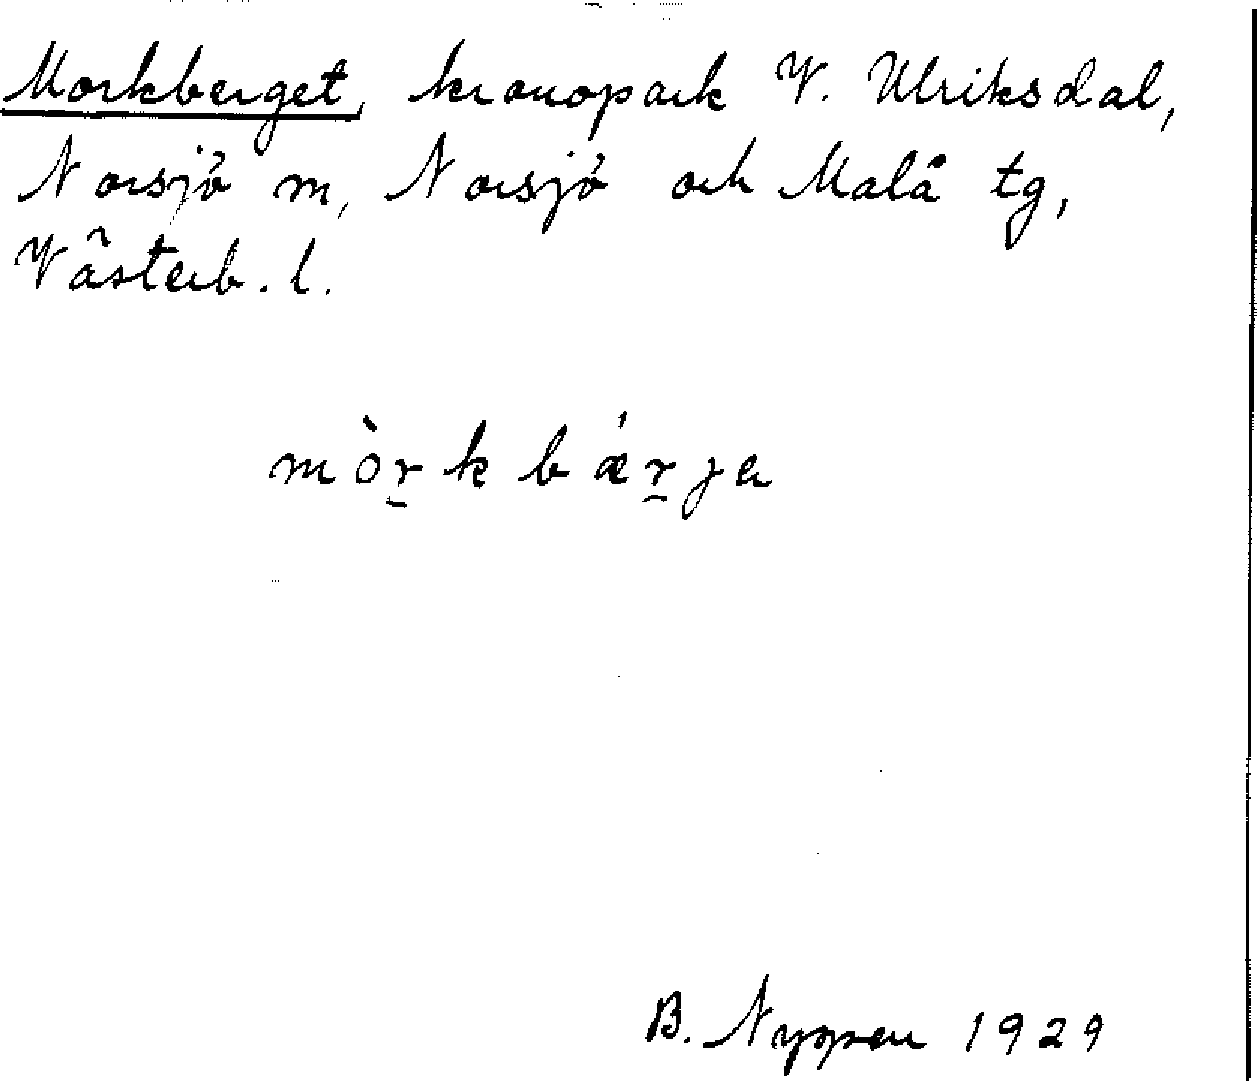 Morkberget, kronopark V. Ulriksdal,
Norsjö m, Norsjö och Malå tg,
Västerb. l.
mòr̠k bǽr̠ja
B. Nygren 1929